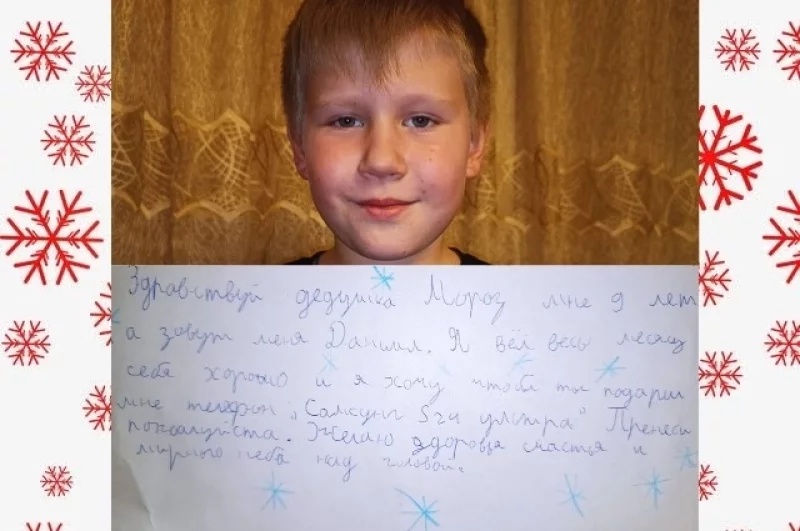 Здравствуй дедушка Мороз мне 9 лет
а зовут меня Даниил. Я вёл весь месяц
себя хорошо и я хочу чтобы ты подарил
мне телефон "Самсунг S24 ултра" Пренеси
пожалуйста. Желаю здоровья счастья и
мирного неба над головой.